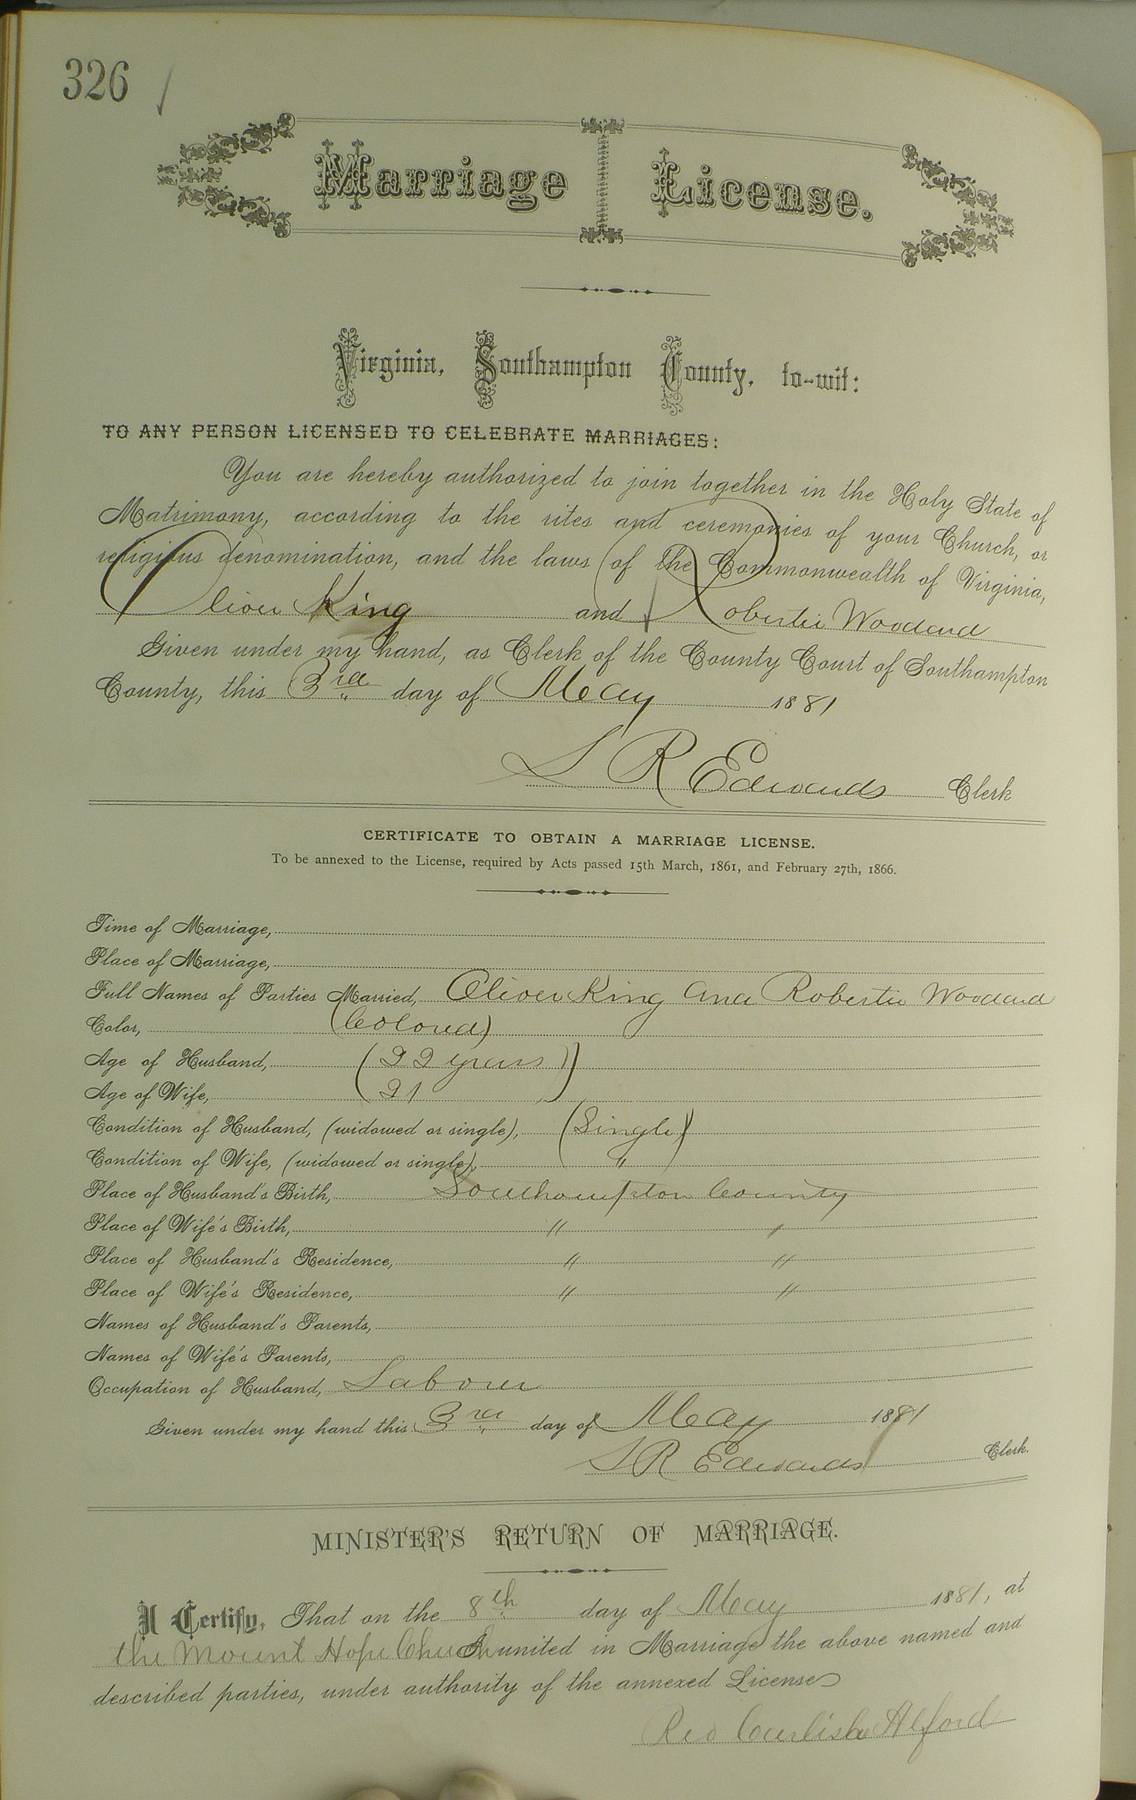 326
Marriage License.
Virginia, Southampton County, to-wit:
TO ANY PERSON LICENSED TO CELEBRATE MARRIAGES:
You are hereby authorized to join together in the Holy State of
Matrimony, according to the rites and ceremonies of your Church, or
religious denomination, and the laws of the Commonwealth of Virginia,
Oliver King and Robertie Woodard
Given under my hand, as Clerk of the County Court of Southampton
County, this 3rd day of May 1881
L R Edwards Clerk
CERTIFICATE TO OBTAIN A MARRIAGE LICENSE.
To be annexed to the License, required by Acts passed 15th March, 1861, and February 27th, 1866.
Time of Marriage,
Place of Marriage,
Full Names of Parties Married, Oliver King and Robertie Woodard
Color, (Colored)
Age of Husband, (22 years)
Age of Wife, (21 )
Condition of Husband, (widowed or single), (Single)
Condition of Wife, (widowed or single), "
Place of Husband's Birth, Southampton County
Place of Wife's Birth, " "
Place of Husband's Residence, " "
Place of Wife's Residence, " "
Names of Husband's Parents,
Names of Wife's Parents,
Occupation of Husband, Laborer
Given under my hand this 3rd day of May 1881
L R Edwards Clerk.
MINISTER'S RETURN OF MARRIAGE.
I Certify, That on the 8th day of May 1881, at
the Mount Hope Church I united in Marriage the above named and
described parties, under authority of the annexed License
Rev Carlisle Alford